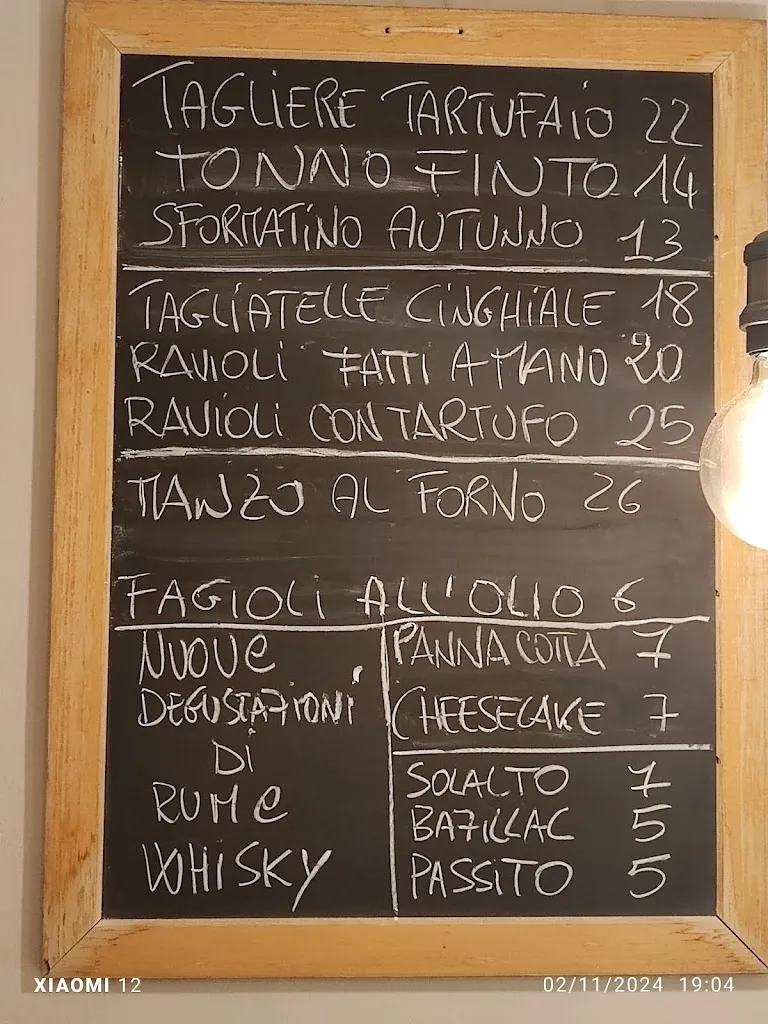 TAGLIERE TARTUFAIO 22
TONNO FINTO 14
SFORMATINO AUTUNNO 13
TAGLIATELLE CINGHIALE 18
RAVIOLI FATTI A MANO 20
RAVIOLI CON TARTUFO 25
MANZO AL FORNO 26
FAGIOLI ALL'OLIO 6
NUOVE
DEGUSTAZIONI
DI
RUM e
WHISKY
PANNA COTTA 7
CHEESECAKE 7
SOLALTO 7
BAZILLAC 5
PASSITO 5
XIAOMI 12
02/11/2024 19:04